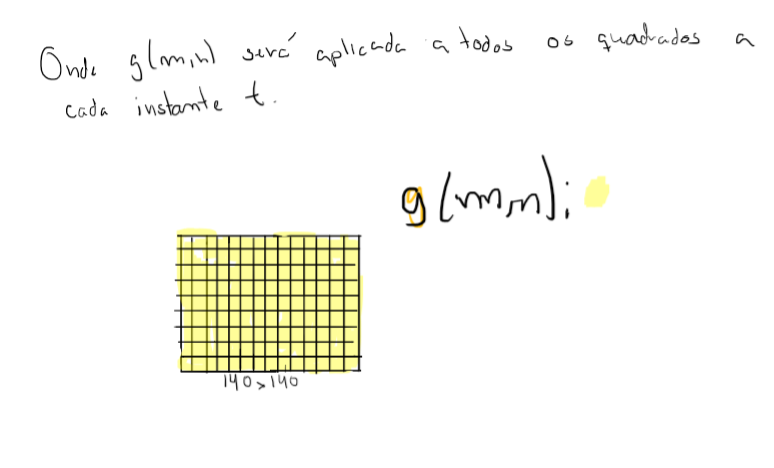 Onde g(m,n) será aplicada a todos os quadrados a
cada instante t.
g(m,n);
140x140